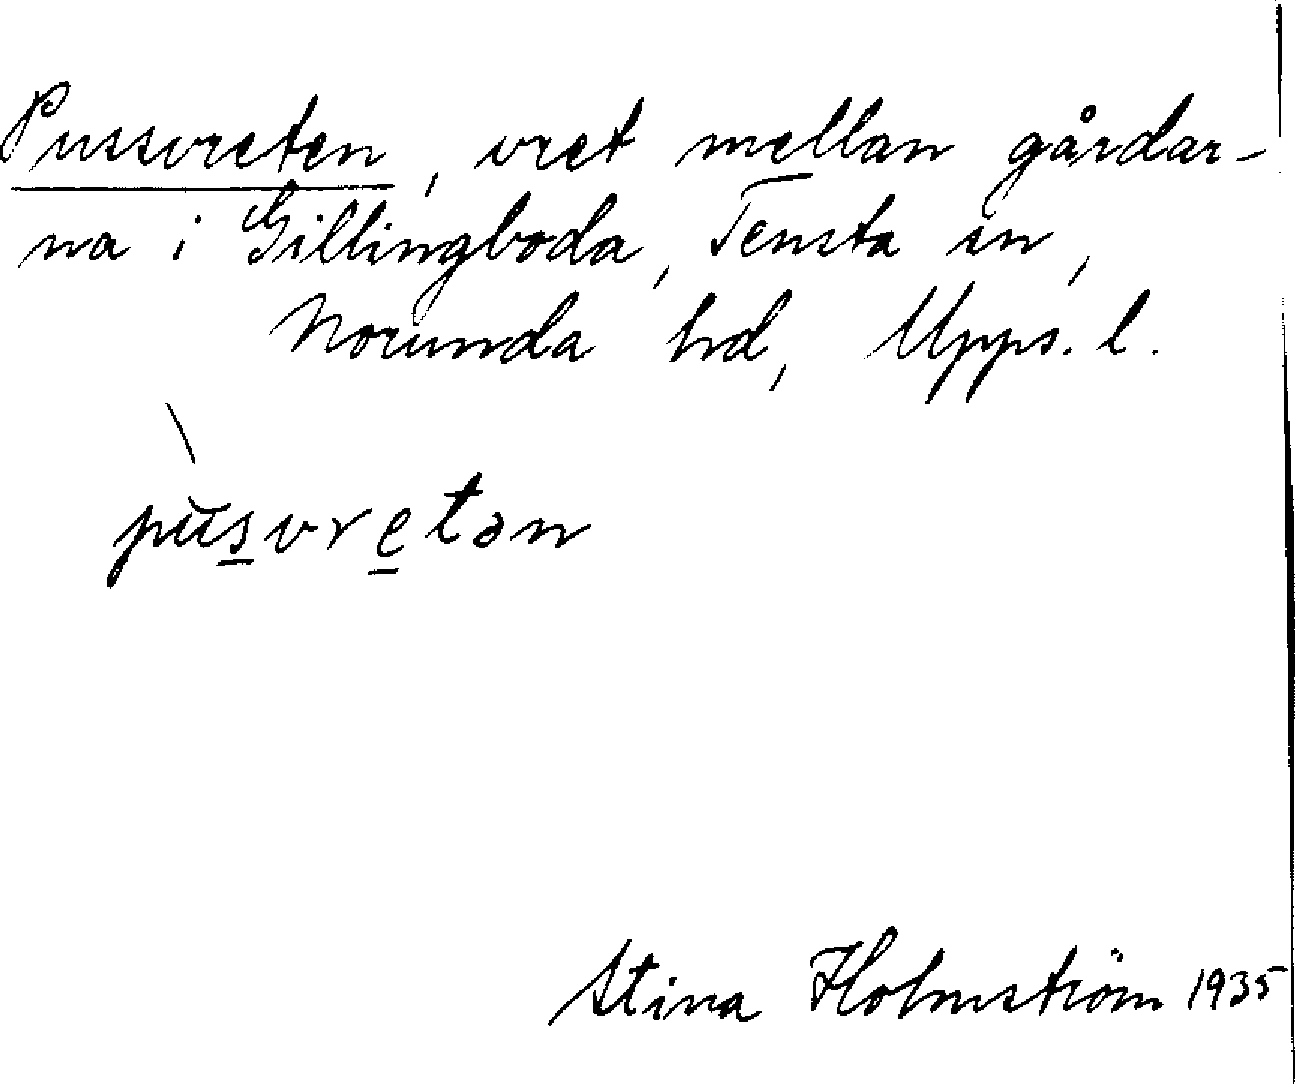 Pussvreten, vret mellan gårdar-
na i Gillingboda, Tensta sn,
Norunda hd, Upps. l.
pŭs̲vre̲tən
Stina Holmström 1935